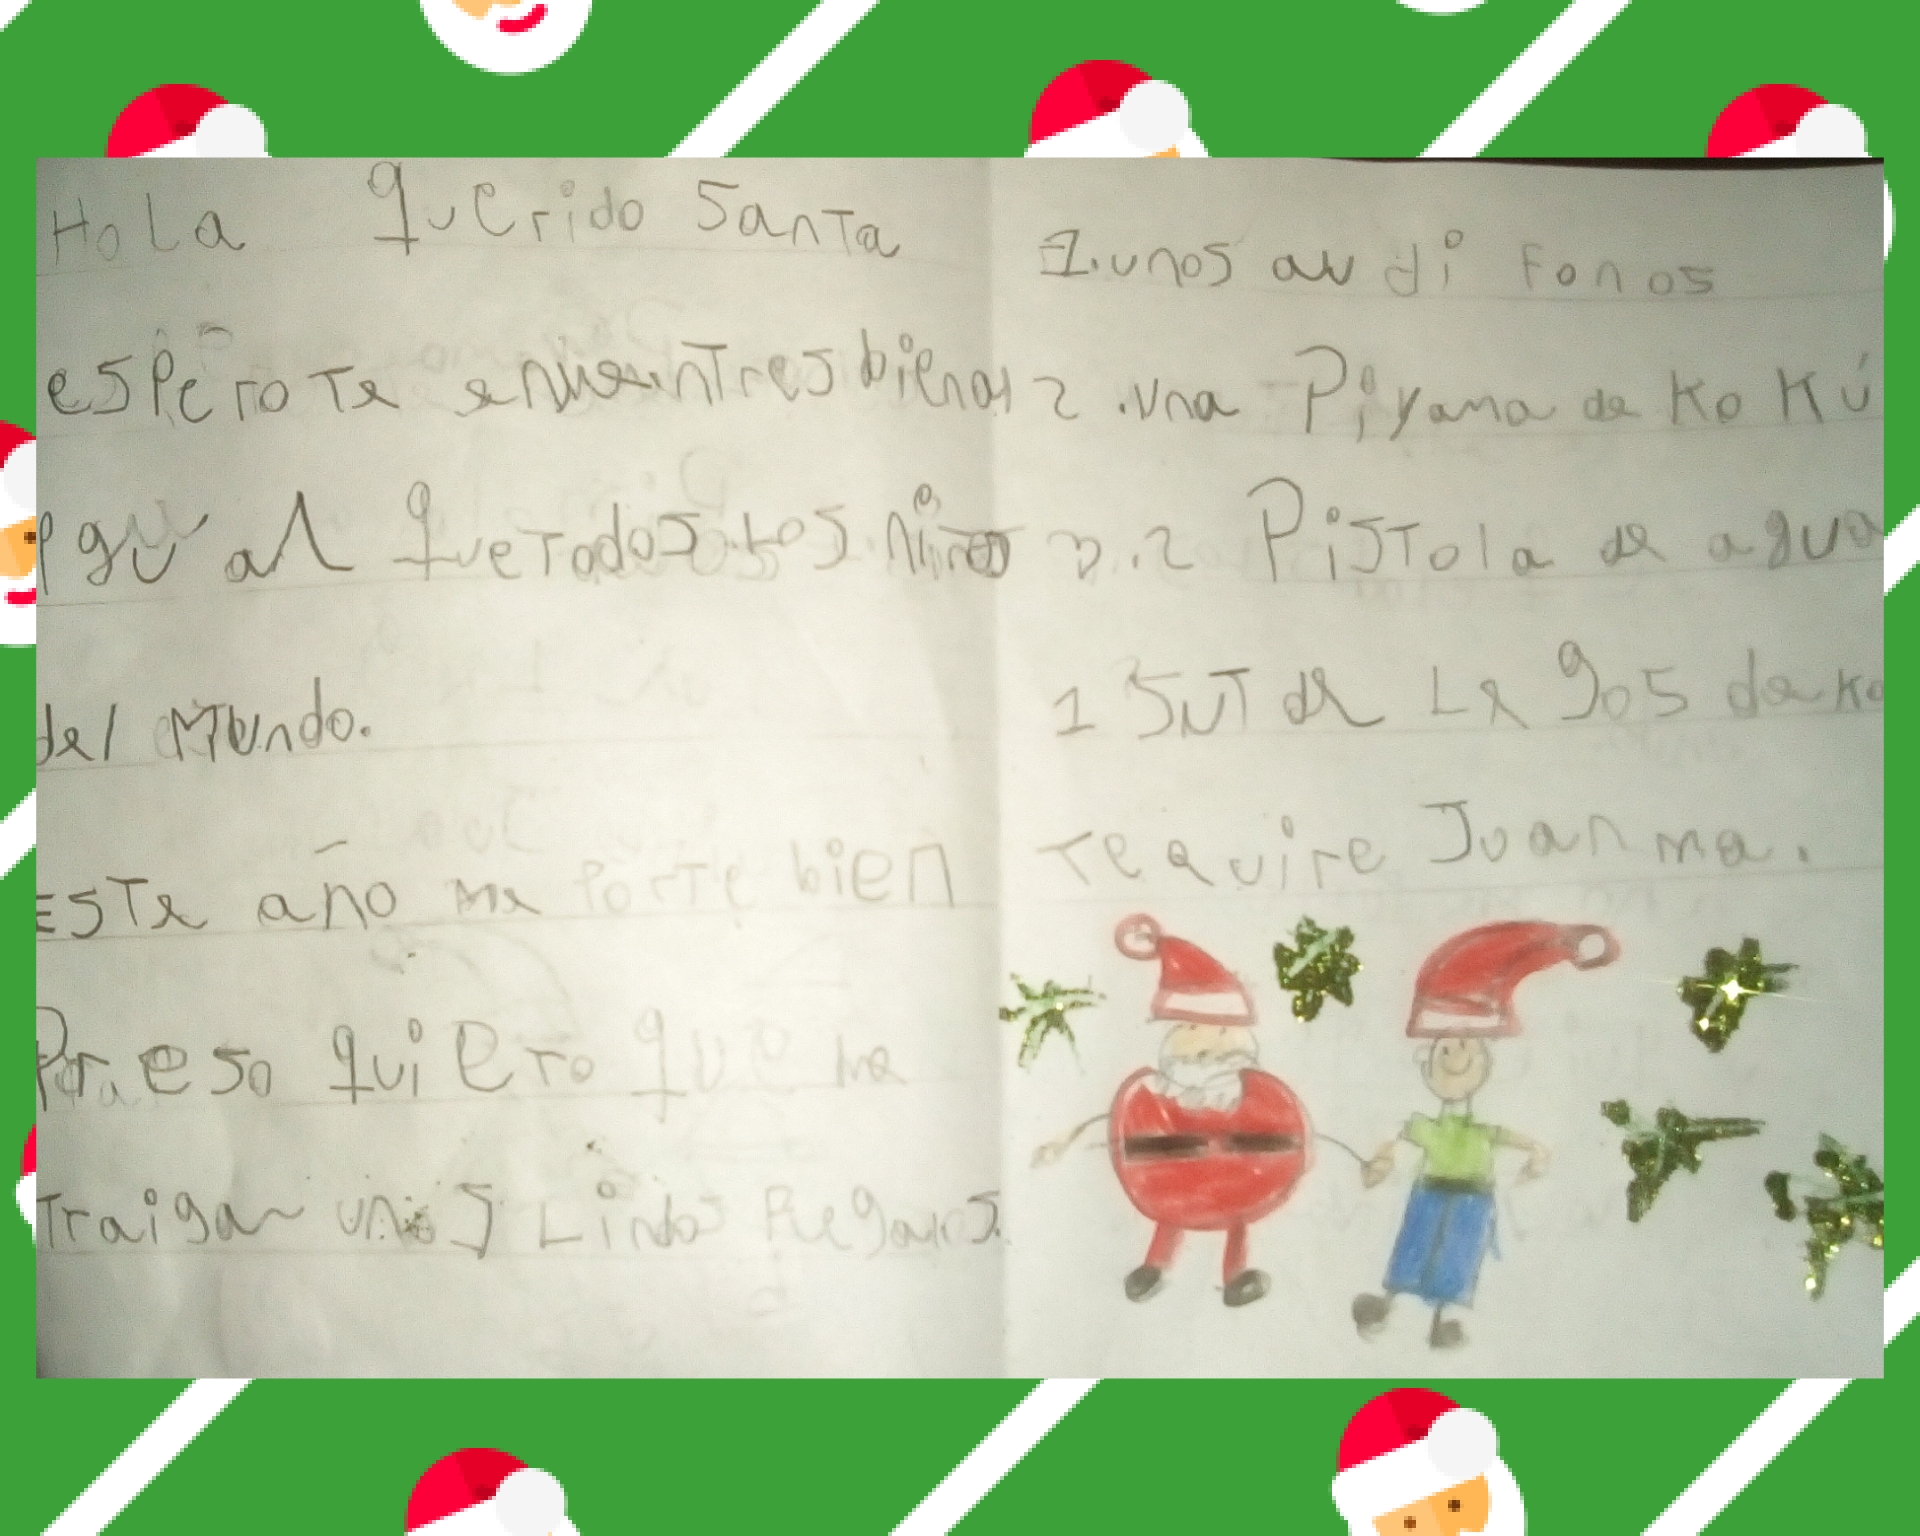 Hola querido Santa
espero te encuentres bien al
igual que todos los niños
del Mundo.
Este año me porte bien
Por eso quiero que me
Traigan unos Lindos Regalos.
1. unos audi Fonos
2. una Piyama de KoKú
3. 2 Pistola de agua
1 SuT de Le gos de Ko
Te quire Juan ma.